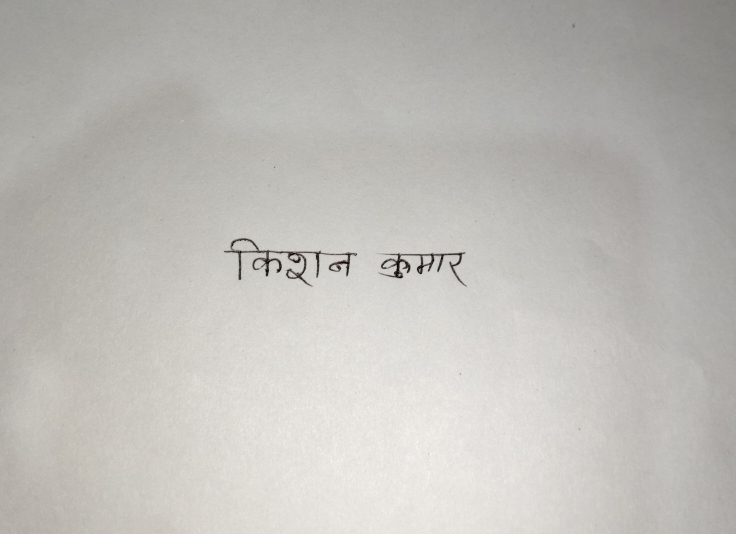 किशन कुमार